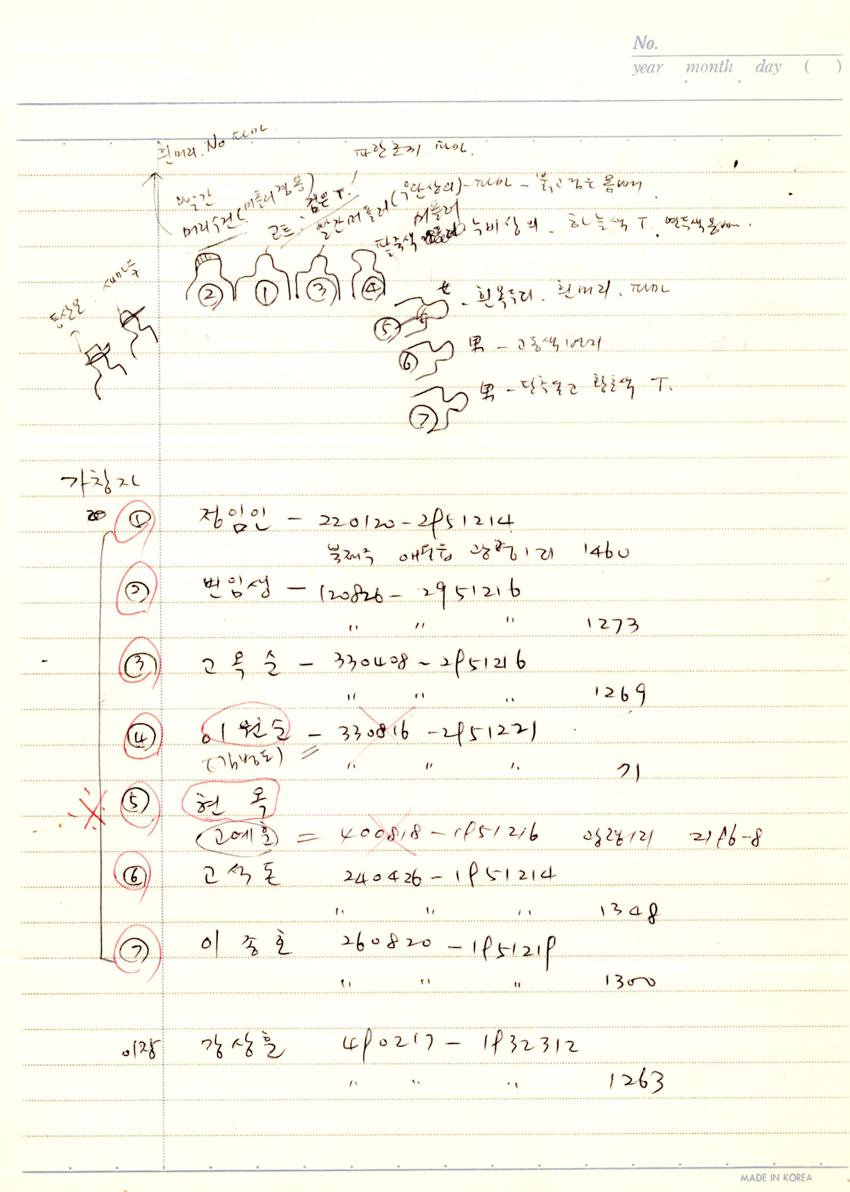 No.
year month day ( )
흰머리. No 파마
파란조끼 파마.
머리수건(머플러겸용)
코트. 검은 T.
빨간머플러(우단상의)-파마 - 붉고 검은 몸빼
머플러
팥죽색 누비상의. 하늘색 T. 연두색 몸빼.
② ① ③ ④
⑤ 女. 흰목도리. 흰머리. 파마
⑥ 男 - 고동색
⑦ 男 - 황토색 T.
가창자
① 정임인 - 220120-2951214
북제주 애월읍 광령1리 1460
② 변임생 - 120826-2951216
" " " 1273
③ 고옥순 - 330408-2951216
" " " 1269
④ 이원순 - 330816-2951221
" " " 71
⑤ 현 옥
고예훈 = 400818-1951216 광령1리 2196-8
⑥ 고석돈 240426-1951214
" " " 1348
⑦ 이종호 260820-1951219
" " " 1300
이장 강상흘 490217-1932312
" " " 1263
MADE IN KOREA